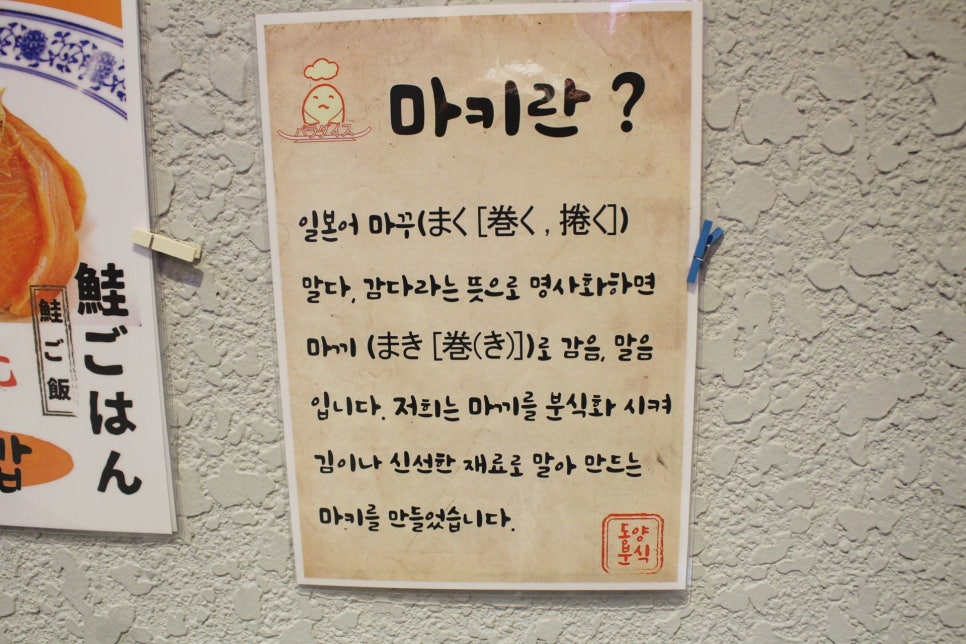 パラダイス
마키란 ?
일본어 마꾸(まく [巻く , 捲く])
말다, 감다라는 뜻으로 명사화하면
마끼 (まき [巻(き)])로 감음, 말음
입니다. 저희는 마끼를 분식화 시켜
김이나 신선한 재료로 말아 만드는
마키를 만들었습니다.
동양
분식
鮭ごはん
鮭ご飯